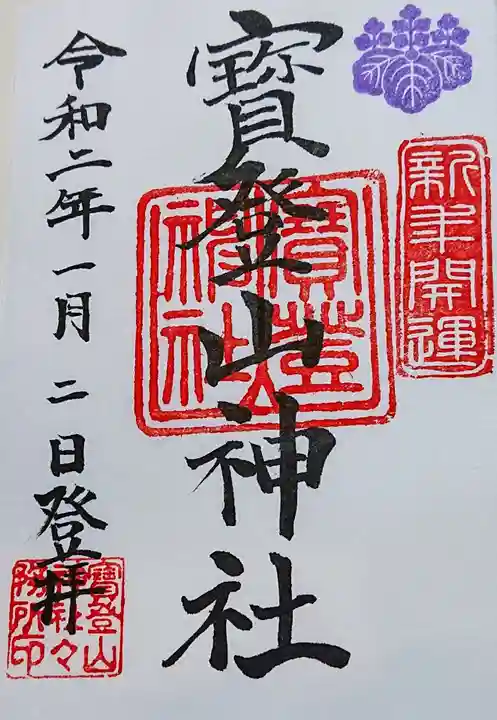 新年開運
寳登山神社
寳登山神社
令和二年一月二日登拝
寳登山
神社々
務所印